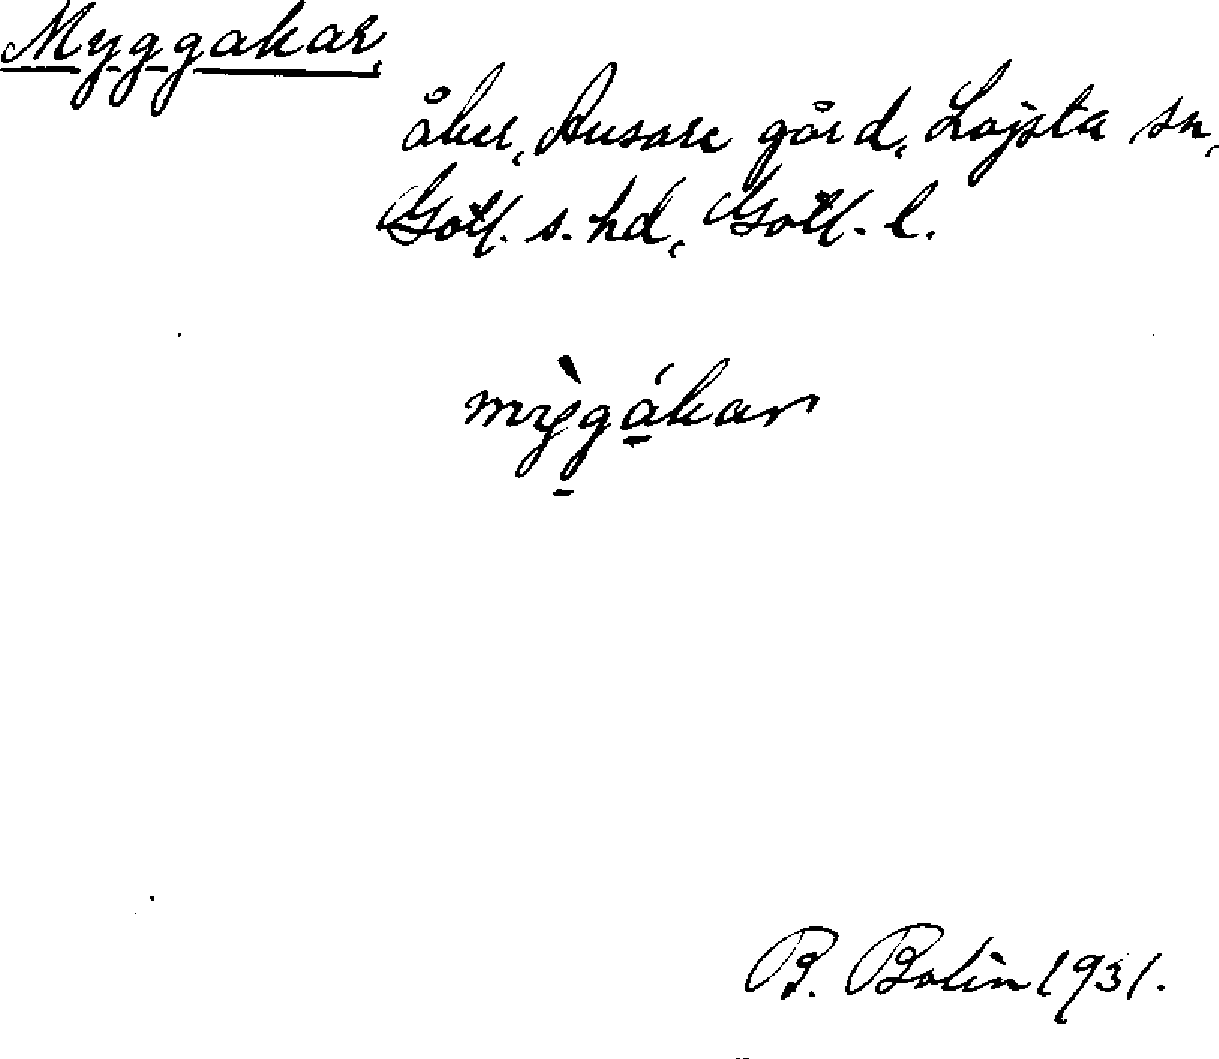 Myggakar
åker, Husare gård, Lojsta sn,
Gotl. s. hd, Gotl. l.
mỳgákar
B. Bolin 1931.